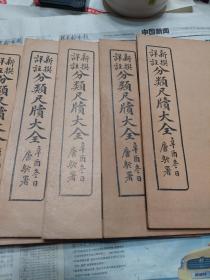 中国新闻
新撰
詳註
分類尺牘大全
辛酉冬日
唐駝署
新撰
詳註
分類尺牘大全
辛酉冬日
唐駝署
新撰
詳註
分類尺牘大全
辛酉冬日
唐駝署
新撰
詳註
分類尺牘大全
辛酉冬日
唐駝署
新撰
詳註
分類尺牘大全